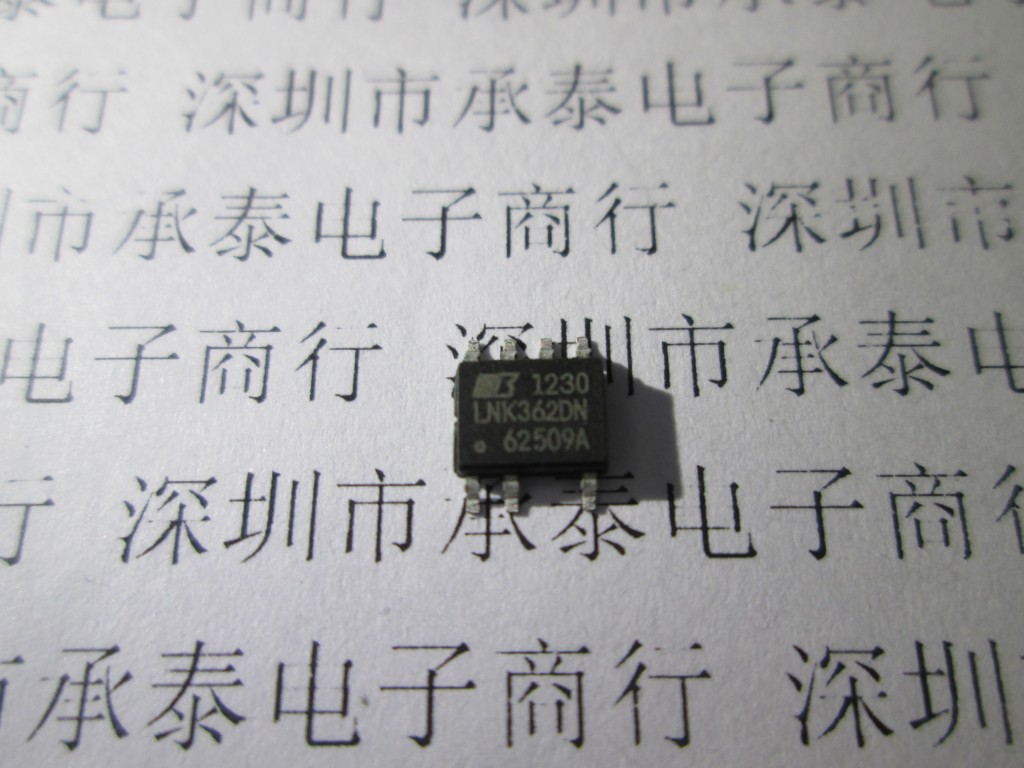 泰电子商行 深圳市承泰电
商行 深圳市承泰电子商行
圳市承泰电子商行 深圳市
电子商行 深圳市承泰电
1230
LNK362DN
62509A
行 深圳市承泰电子商
市承泰电子商行 深圳